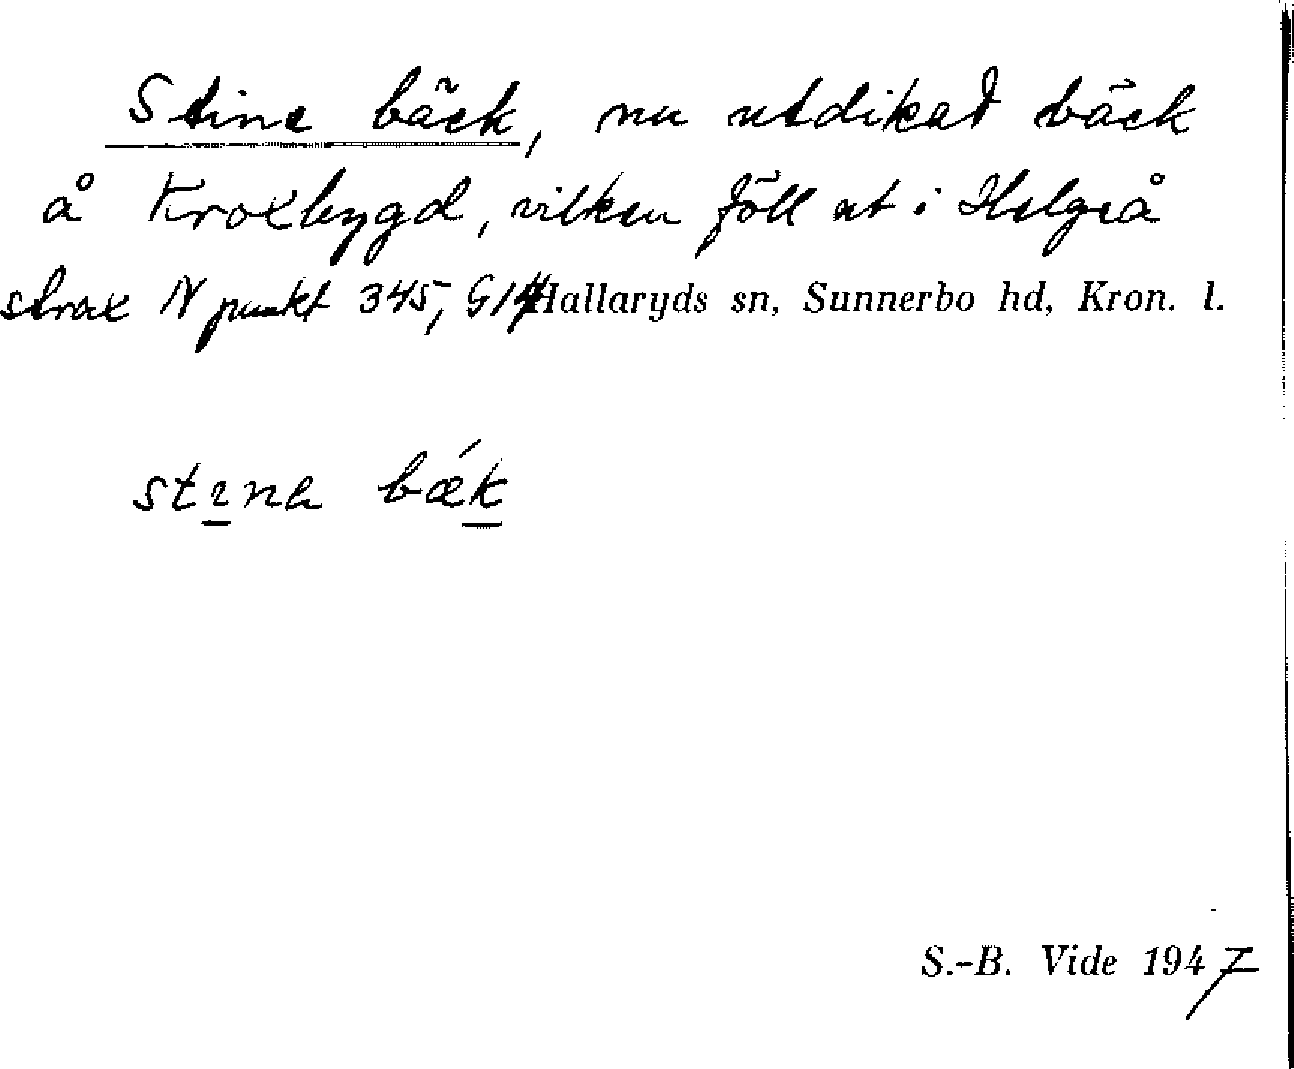 Stine bäck, nu utdikad bäck
å Kroxbygd, vilken föll ut i Helgeå
strax N punkt 345, G14 Hallaryds sn, Sunnerbo hd, Kron. l.
stina bǽk
S.-B. Vide 1947